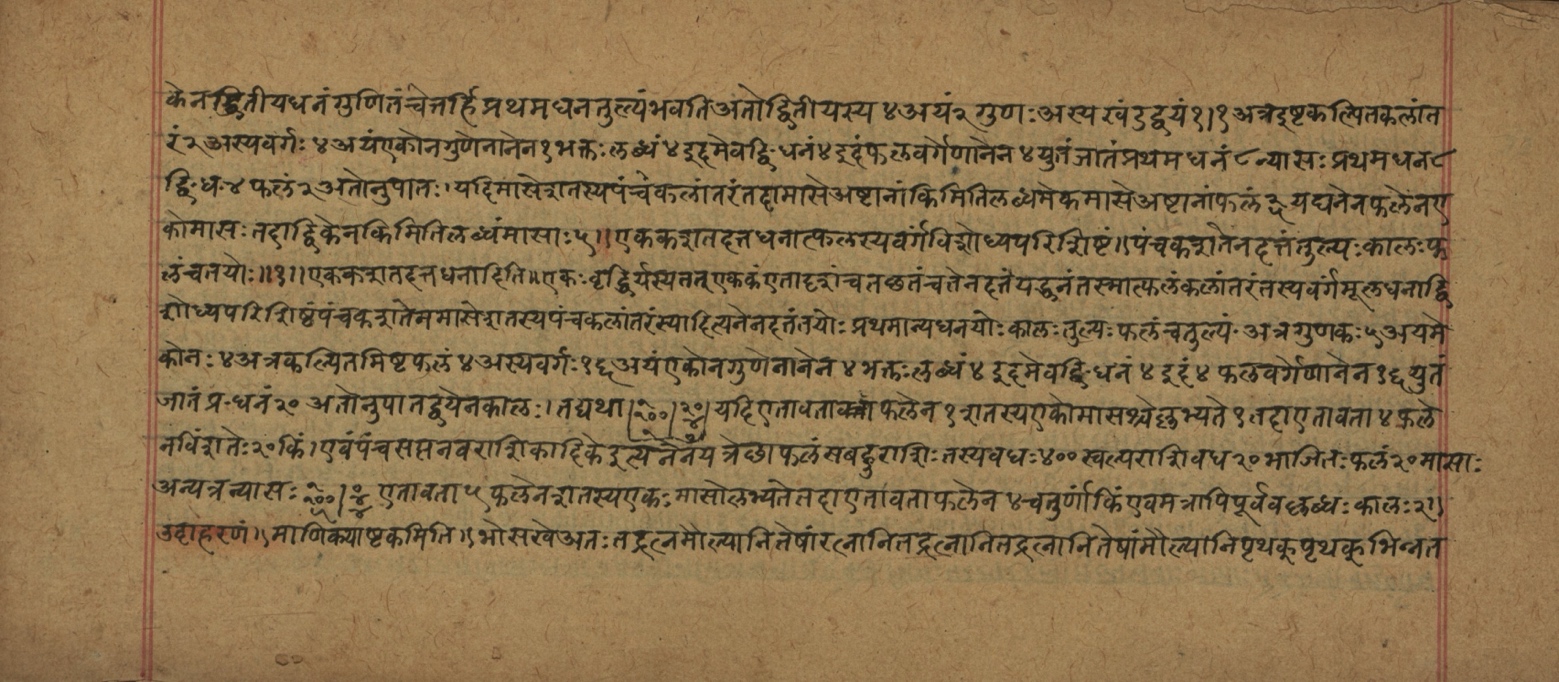 केनद्वितीयधनंगुणितंचेत्तर्हिप्रथमधनतुल्यंभवतिअतोद्वितीयस्य४अयं२गुणःअस्यखंडद्वयं१।१अत्रइष्टकल्पितकलांत
रं२अस्यवर्गः४अयंएकोनगुणेनानेन१भक्तःलब्धं४इदमेवद्वि·धनं४इदंफलवर्गेणानेन४युतंजातंप्रथमधनं८न्यासःप्रथमधन८
द्वि·ध·४फलं२अतोनुपातः।यदिमासेशतस्यपंचकलांतरंतदामासेअष्टानांकिमितिलब्धमेकमासेअष्टानांफलं
कोमासःतदाद्विकेनकिमितिलब्धंमासाः५॥एककशतदत्तधनात्फलस्यवर्गंविशोध्यपरिशिष्टं॥पंचकशतेनदत्तंतुल्यःकालःफ
लंचतयोः॥१॥एककशतदत्तधनादिति॥एकःवृद्धिर्यस्यतत्एककंएतादृशंचतछतंचतेनदत्तंयद्धनंतस्मात्फलंकलांतरंतस्यवर्गंमूलधनाद्वि
शोध्यपरिशिष्टंपंचकशतेनमासेशतस्यपंचकलांतरंस्यादित्यनेनदत्तंतयोःप्रथमान्यधनयोःकालःतुल्यःफलंचतुल्यं·अत्रगुणकः५अयमे
कोनः४अत्रकल्पितमिष्टफलं४अस्यवर्गः१६अयंएकोनगुणेनानेन४भक्तःलब्धं४इदमेवद्वि·धनं४इदं४फलवर्गेणानेन१६युतं
जातंप्र·धनं२०अतोनुपातद्वयेनकालः।तद्यथा यदिएतावताफलेन१शतस्यएकोमासश्चेल्लभ्यते१तदाएतावता४फले
नविंशतेः२०किं।एवंपंचसप्तनवराशिकादिकेइत्यनेनयत्रेछाफलंसबहुराशिःतस्यवधः४००स्वल्पराशिवध२०भाजितःफलं२०मासाः
अन्यत्रन्यासः एतावता५फलेनशतस्यएकःमासोलभ्यतेतदाएतावताफलेन४चतुर्णांकिंएवमत्रापिपूर्ववल्लब्धःकालः२०
उदाहरणं॥माणिक्याष्टकमिति॥भोसखेअतःतद्रत्नमौल्यानितेषांरत्नानितद्रत्नानितद्रत्नानितेषांमौल्यानिपृथक्पृथक्भिन्नत